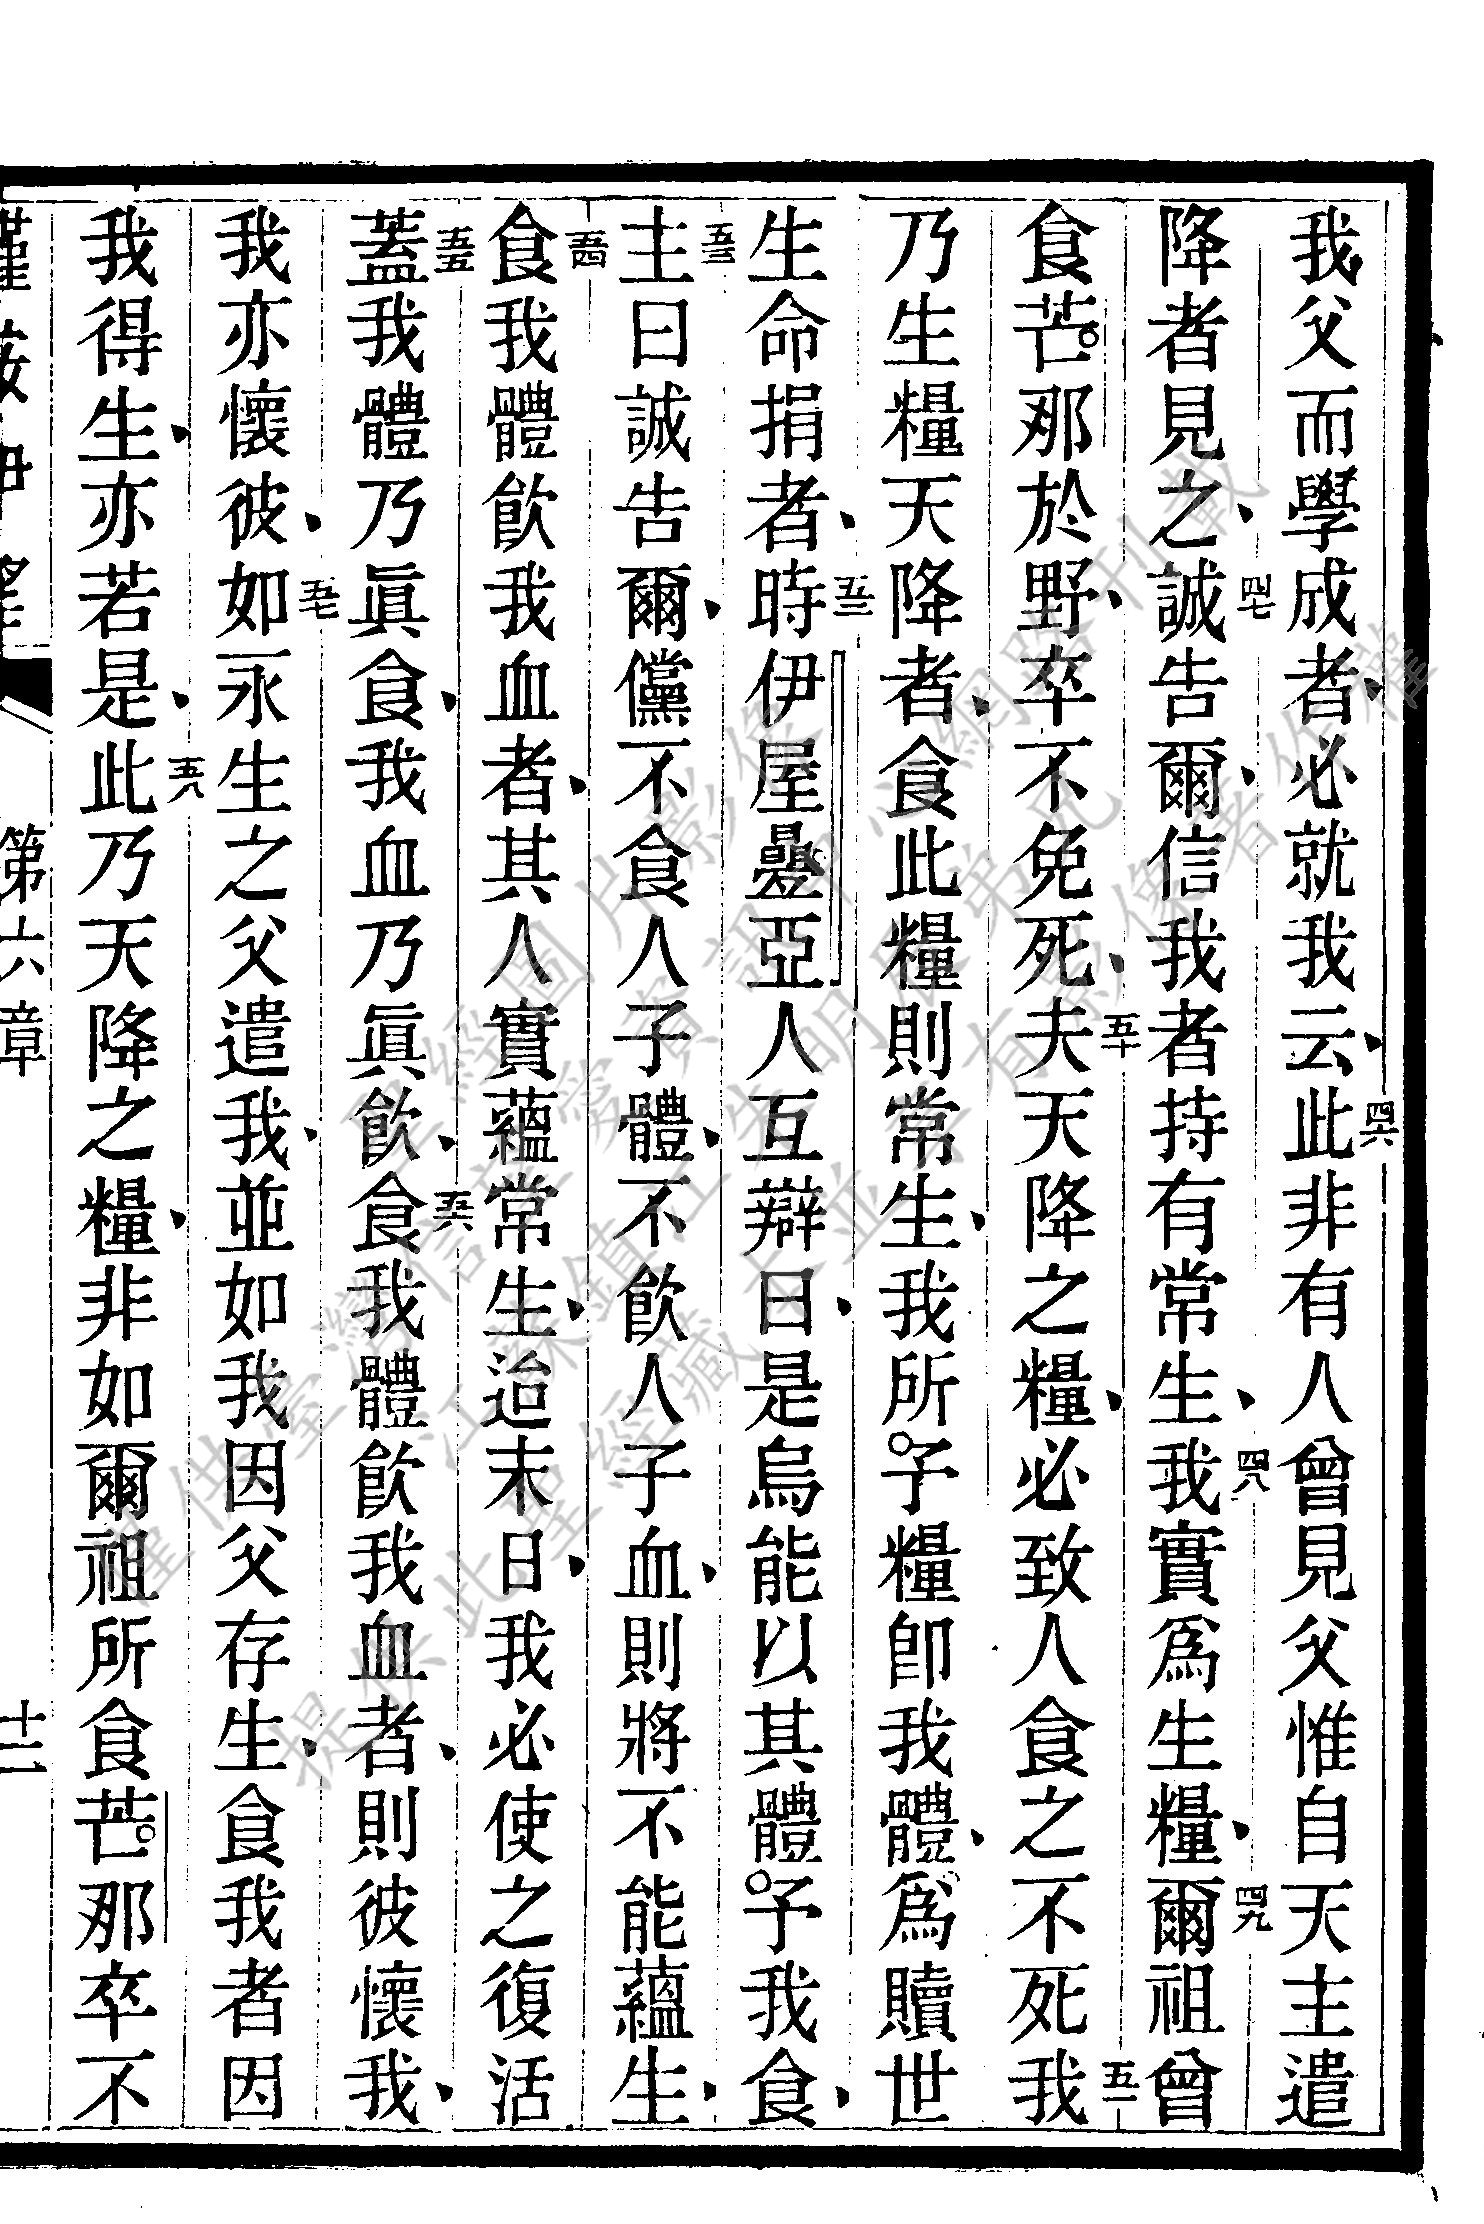 我父而學成者必就我云此非有人曾見父惟自天主遣
降者見之誠告爾信我者持有常生我實爲生糧爾祖曾
食芒那於野卒不免死夫天降之糧必致人食之不死我
乃生糧天降者食此糧則常生我所予糧卽我體爲贖世
生命捐者時伊屋疉亞人互辯曰是烏能以其體予我食
主曰誠告爾儻不食人子體不飮人子血則將不能蘊生
食我體飮我血者其人實蘊常生迨末日我必使之復活
蓋我體乃眞食我血乃眞飮食我體飮我血者則彼懷我
我亦懷彼如永生之父遣我並如我因父存生食我者因
我得生亦若是此乃天降之糧非如爾祖所食芒那卒不
第六章 十二
四六
四七
四八
四九
五十
五一
五二
五三
五四
五五
五六
五七
五八